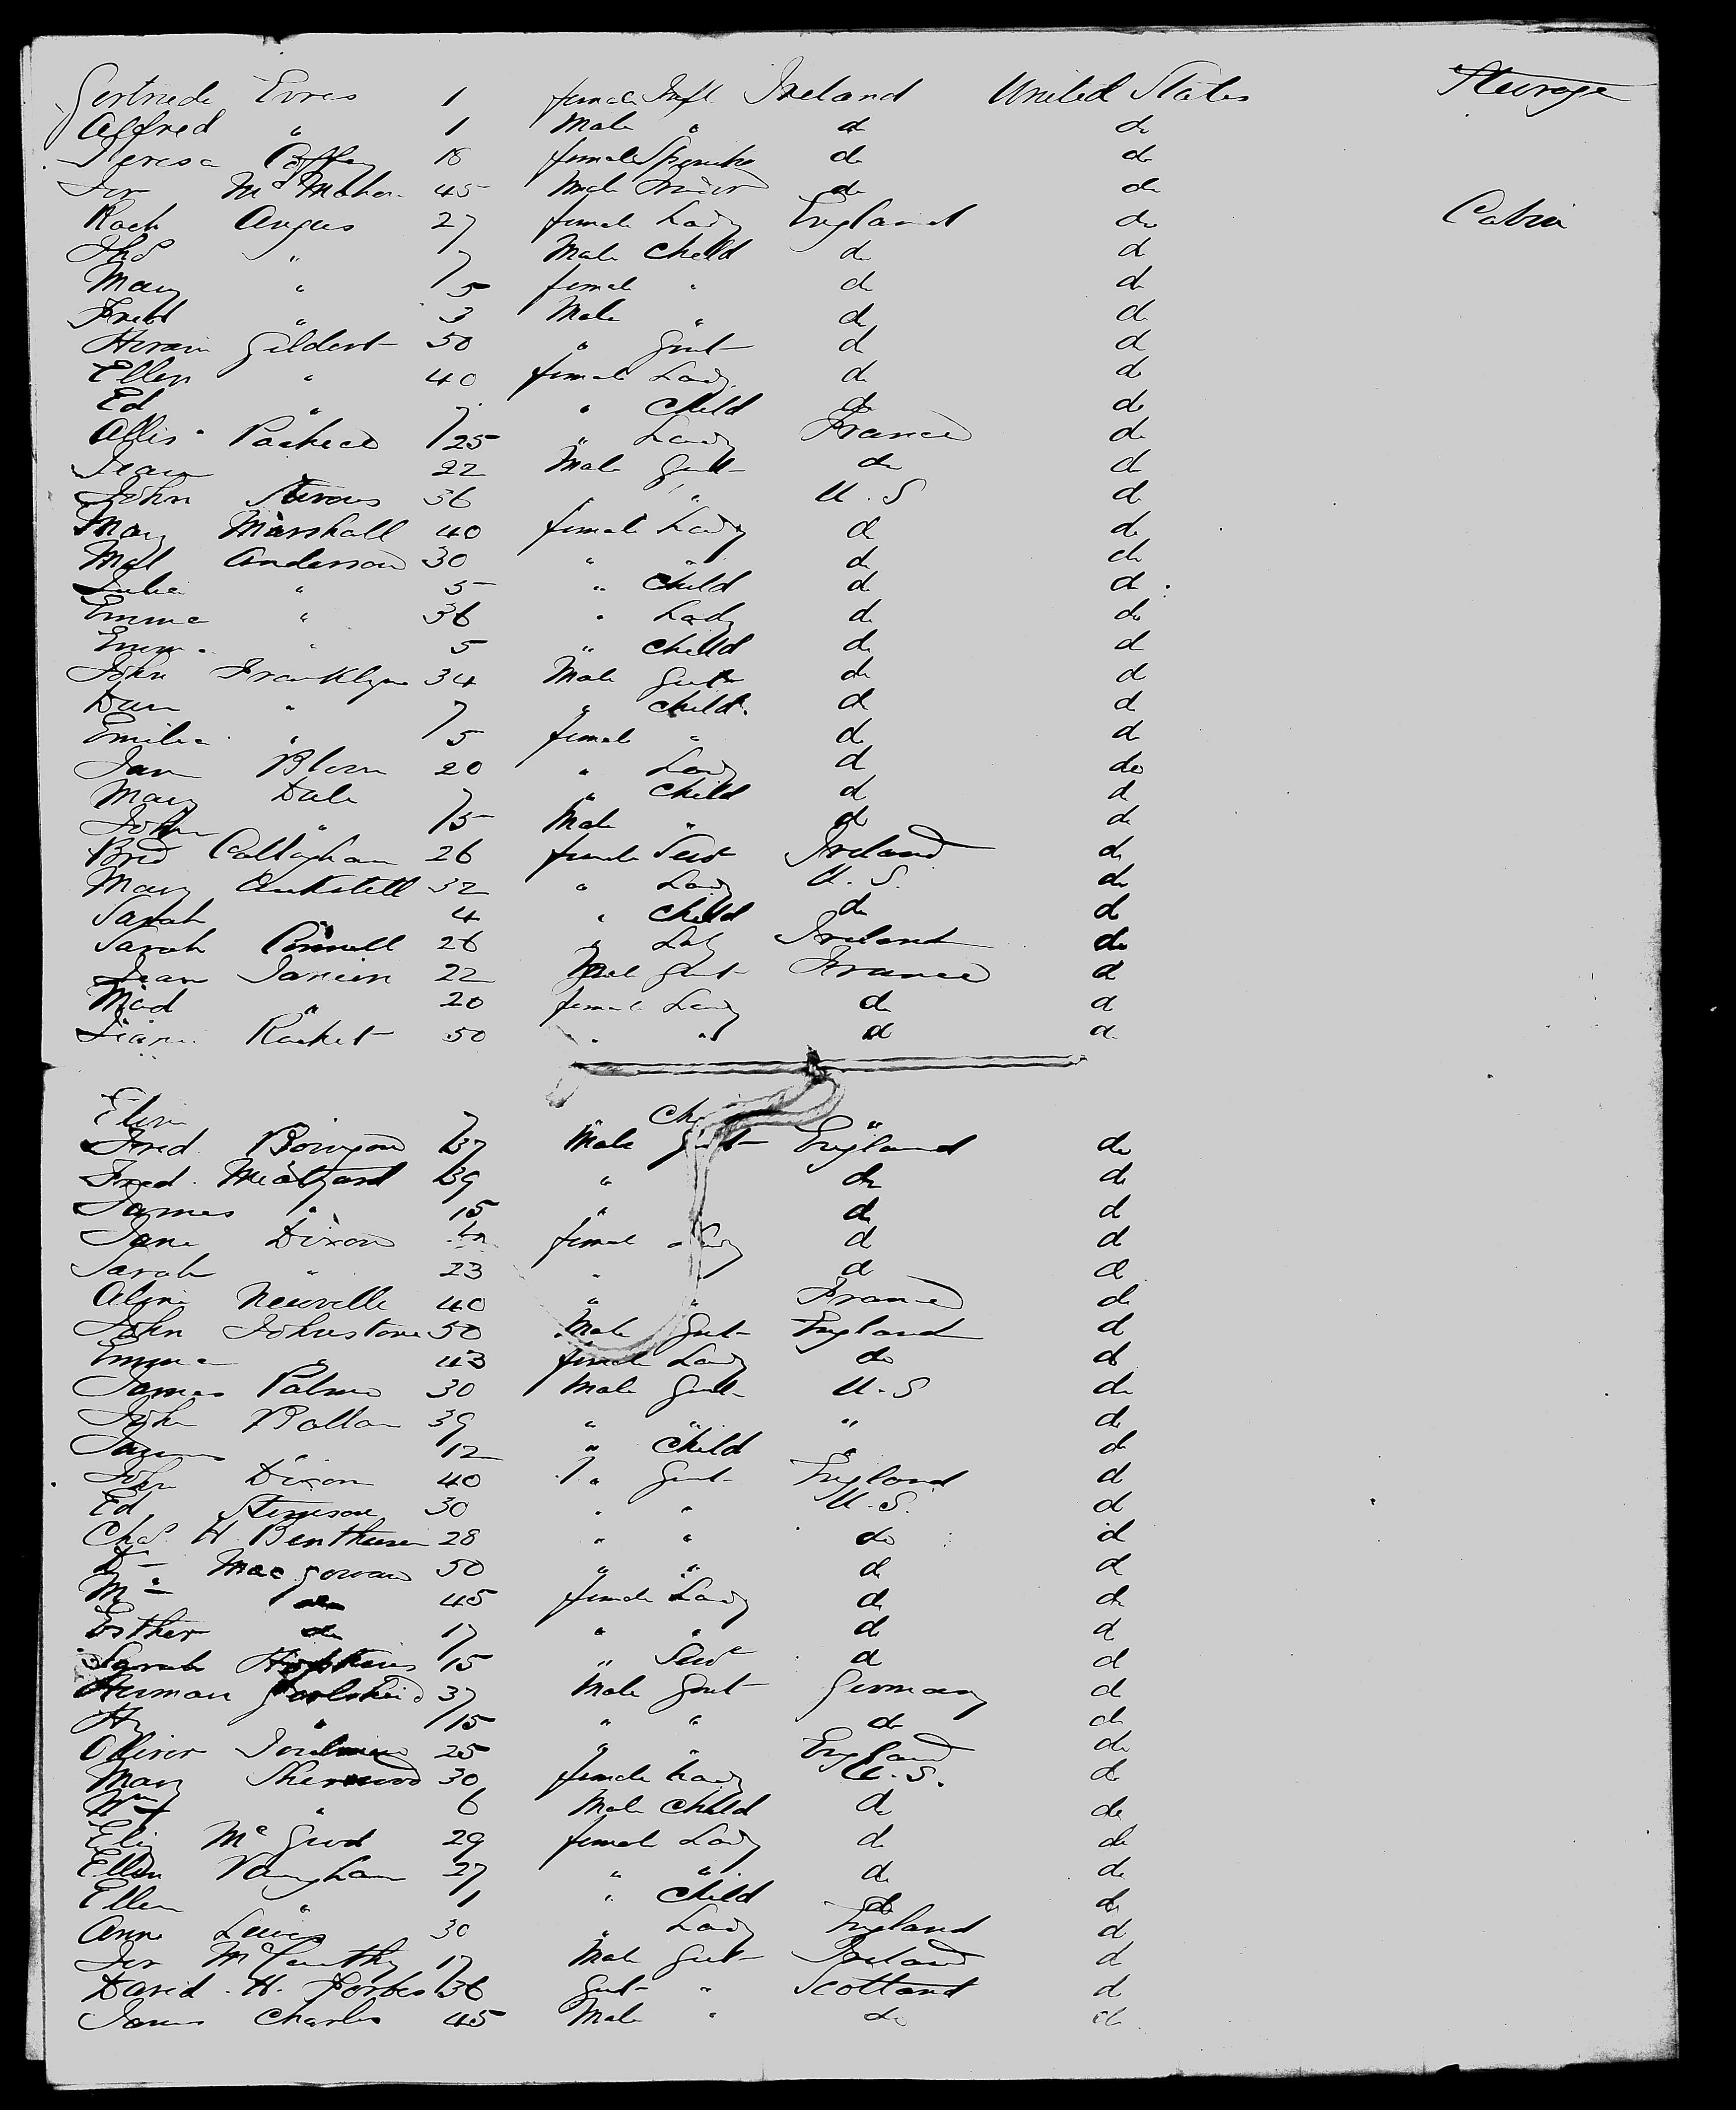 Gertrude Evres 1 female Inft Ireland United States Steerage
Alfred " 1 Male " do do
Teresa Coffey 18 female Spinster do do
Jer McMahon 45 Male do do
Rach Angus 27 female Lady England do Cabin
Thos " 7 Male Child do do
Mary " 5 female " do do
Fredk " 3 Male " do do
Hiram Gildert 50 " Gent do do
Ellen " 40 female Lady do do
Ed " 7 " Child do do
Allis Pacheco 25 " Lady France do
Jean 22 Male Gent do do
John 36 " " U.S do
Mary Marshall 40 female Lady do do
Mal Anderson 30 " " do do
Julia " 5 " Child do do
Emma " 36 " Lady do do
Emma " 5 " Child do do
John Franklyn 34 Male Gent do do
Dan " 7 " Child do do
Emilia " 5 female " do do
Jan Blom 20 " Lady do do
Mary Dale 7 " Child do do
John " 5 Male " do do
Brid Callaghan 26 female Sevt Ireland do
Mary 32 " Lady U.S. do
Sarah 4 " Child do do
Sarah Connell 26 " Lady Ireland do
Jean Janien 22 Male Gent France do
Mad " 20 female Lady do do
Racket 50 " " do do
7 "
Fred 37 Male Gent England do
Fred 39 " do do
James " 15 " do do
Jane Dixon female Lady do do
Sarah " 23 " do do
Neuville 40 " " France do
John Johnstone 50 Male Gent England do
Emma " 43 female Lady do do
James Palmer 30 Male Gent U.S do
John 39 " " " do
James " 12 " Child " do
John Dixon 40 " Gent England do
Ed Stimson 30 " " U.S. do
Chas H Benthusen 28 " " do do
Dr MacGowan 50 " " do do
Mrs do 45 female Lady do do
Esther do 17 " " do do
Sarah Hopkins 15 " Sevt do do
Herman 37 Male Gent Germany do
Hy " 15 " " do do
Oliver 25 " " England do
Mary Sherwood 30 female Lady U.S. do
Wm " 6 Male Child do do
Eliz Mc 29 female Lady do do
Ellen Vaughan 27 " " do do
Ellen " 1 " Child do do
Anne Lewis 30 " Lady England do
Jer McCarthy 17 Male Gent Ireland do
David H. Forbes 36 Gent " Scotland do
James Charles 45 Male " do do